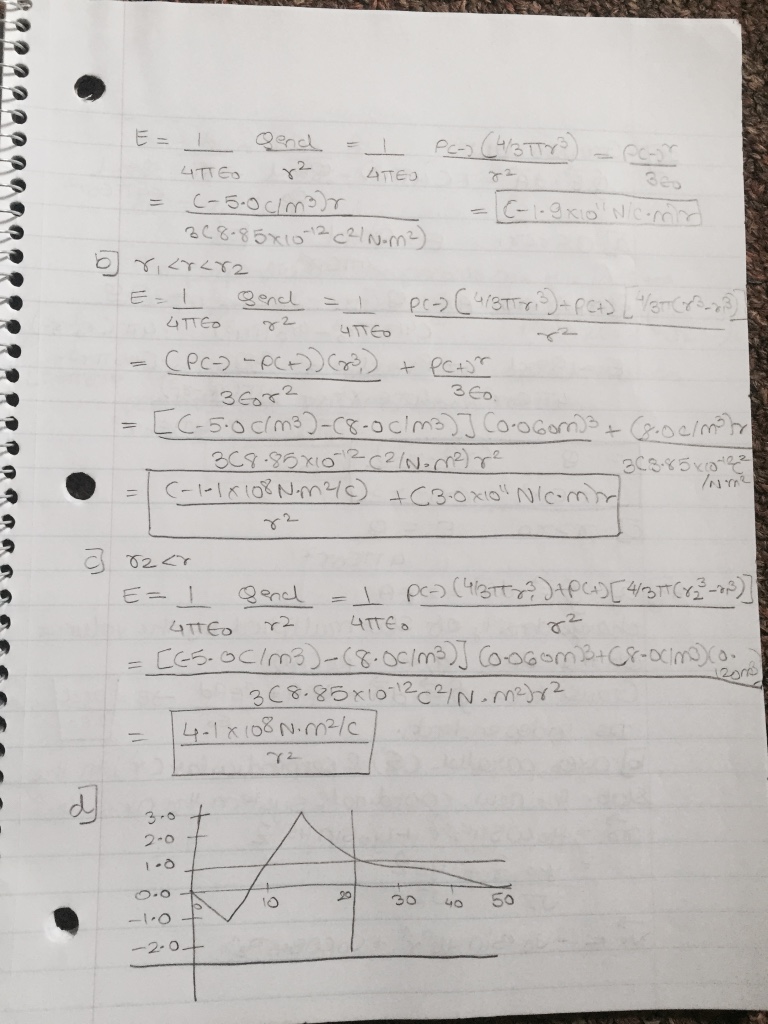 E = 1/4πε0 qencl/r2 = 1/4πε0 ρ(-)(4/3πr3)/r2 = ρ(-)r/3ε0
= (-5.0c/m3)r/3(8.85x10-12 c2/N.m2) = (-1.9x1011 N/c.m)r
b] r1<r<r2
E = 1/4πε0 qencl/r2 = 1/4πε0 ρ(-)(4/3πr1 3)+ρ(+)[4/3π(r3-r1 3)]/r2
= (ρ(-)-ρ(+))(r1 3)/3ε0r2 + ρ(+)r/3ε0
= [(-5.0c/m3)-(8.0c/m3)](0.060m)3/3(8.85x10-12 c2/N.m2)r2 + (8.0c/m3)r/3(8.85x10-12 c2/N.m2)
= (-1.1x108 N.m2/c)/r2 + (3.0x1011 N/c.m)r
c] r2<r
E = 1/4πε0 qencl/r2 = 1/4πε0 ρ(-)(4/3πr1 3)+ρ(+)[4/3π(r2 3-r1 3)]/r2
= [(-5.0C/m3)-(8.0c/m3)](0.060m)3+(8.0c/m3)(0.120m)3/3(8.85x10-12 c2/N.m2)r2
= 4.1x108 N.m2/c/r2
d]
3.0
2.0
1.0
0.0
-1.0
-2.0
0 10 20 30 40 50